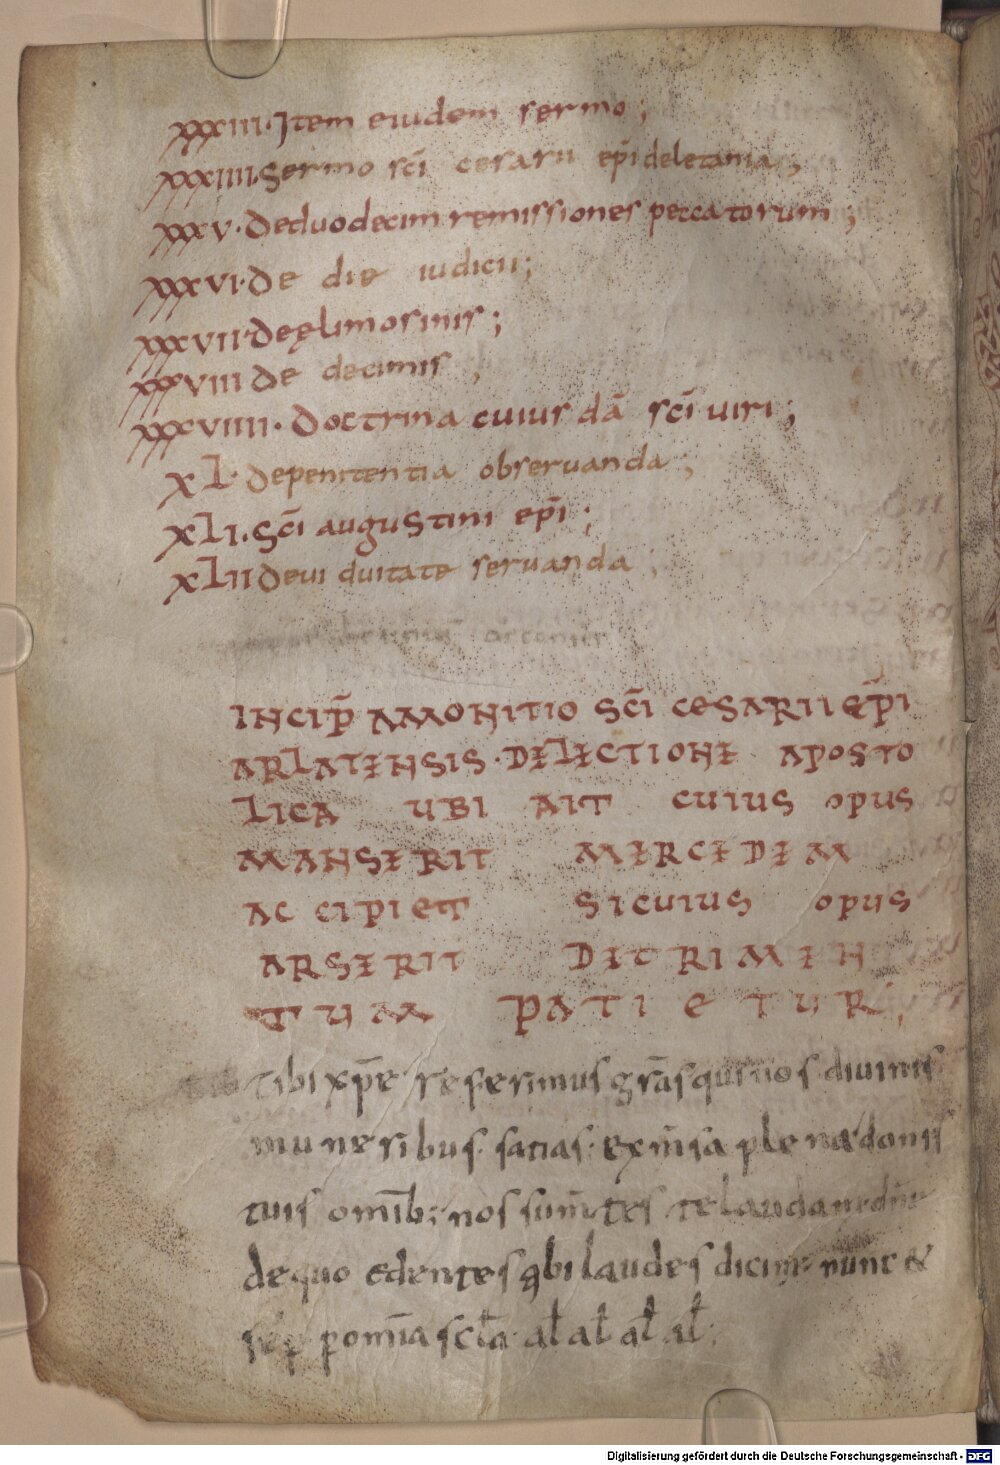 xxxiii. Item eiusdem sermo;
xxxiiii. Sermo sc̄i cesarii ep̄i de letania;
xxxv. De duodecim remissiones peccatorum;
xxxvi. De die iudicii;
xxxvii. De ęlimosinis;
xxxviii De decimis;
xxxviiii. Doctrina cuius dā sc̄i uiri;
xl. de penitentia obseruanda;
xli. Sc̄i augustini ep̄i;
xlii De ui duitate seruanda;
INCIP̄ AMMONITIO SC̄I CESARII EP̄I
ARLATENSIS. DE LECTIONE APOSTO
LICA UBI AIT CUIUS OPUS
MANSERIT MERCEDEM
ACCIPIET SI CUIUS OPUS
ARSERIT DETRIMEN
TUM PATIETUR;
tibi xp̄e referimus grās qui nos diuinis
muneribus satias. ex m̄sa plena donis
tuis omīb; nos sum̄tes te laudam
de quo edentes laudes dicim nunc &
sep p om̄ia scl̄a. al̄ al̄ al̄ al̄.
Digitalisierung gefördert durch die Deutsche Forschungsgemeinschaft - DFG